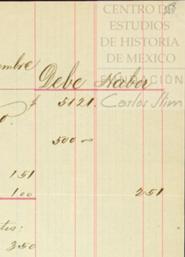 CENTRO DE
ESTUDIOS
DE HISTORIA
DE MEXICO
FUNDACIÓN
Carlos Slim
embre
Debe Haber
$ 5121.
o.
500 —
1 51
1 00 2 51
tes:
3 50